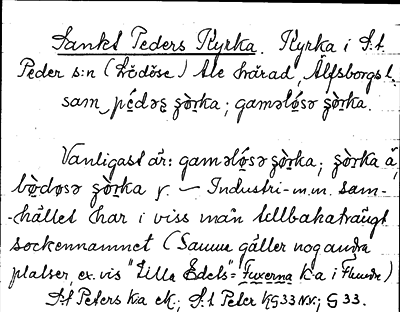 Sankt Peders Kyrka. Kyrka i S:t
Peder s:n (Lödöse) Ale härad, Älfsborgs l.
sam pédəʂ ʂò̤rka; gaməlǿsə ʂò̤rka.
Vanligast är: gaməlǿsə ʂò̤rka; ʂò̤rka å
ʂò̤rka — Industri- m.m. sam-
-hället har i viss mån tillbakaträngt
sockennamnet (Samma gäller nog andra
platser, ex. vis "Lilla Edets" = Fuxerna K:a i Flundre)
S:t Peters K:a ek; S:t Peter KG33 NV.; G 33.